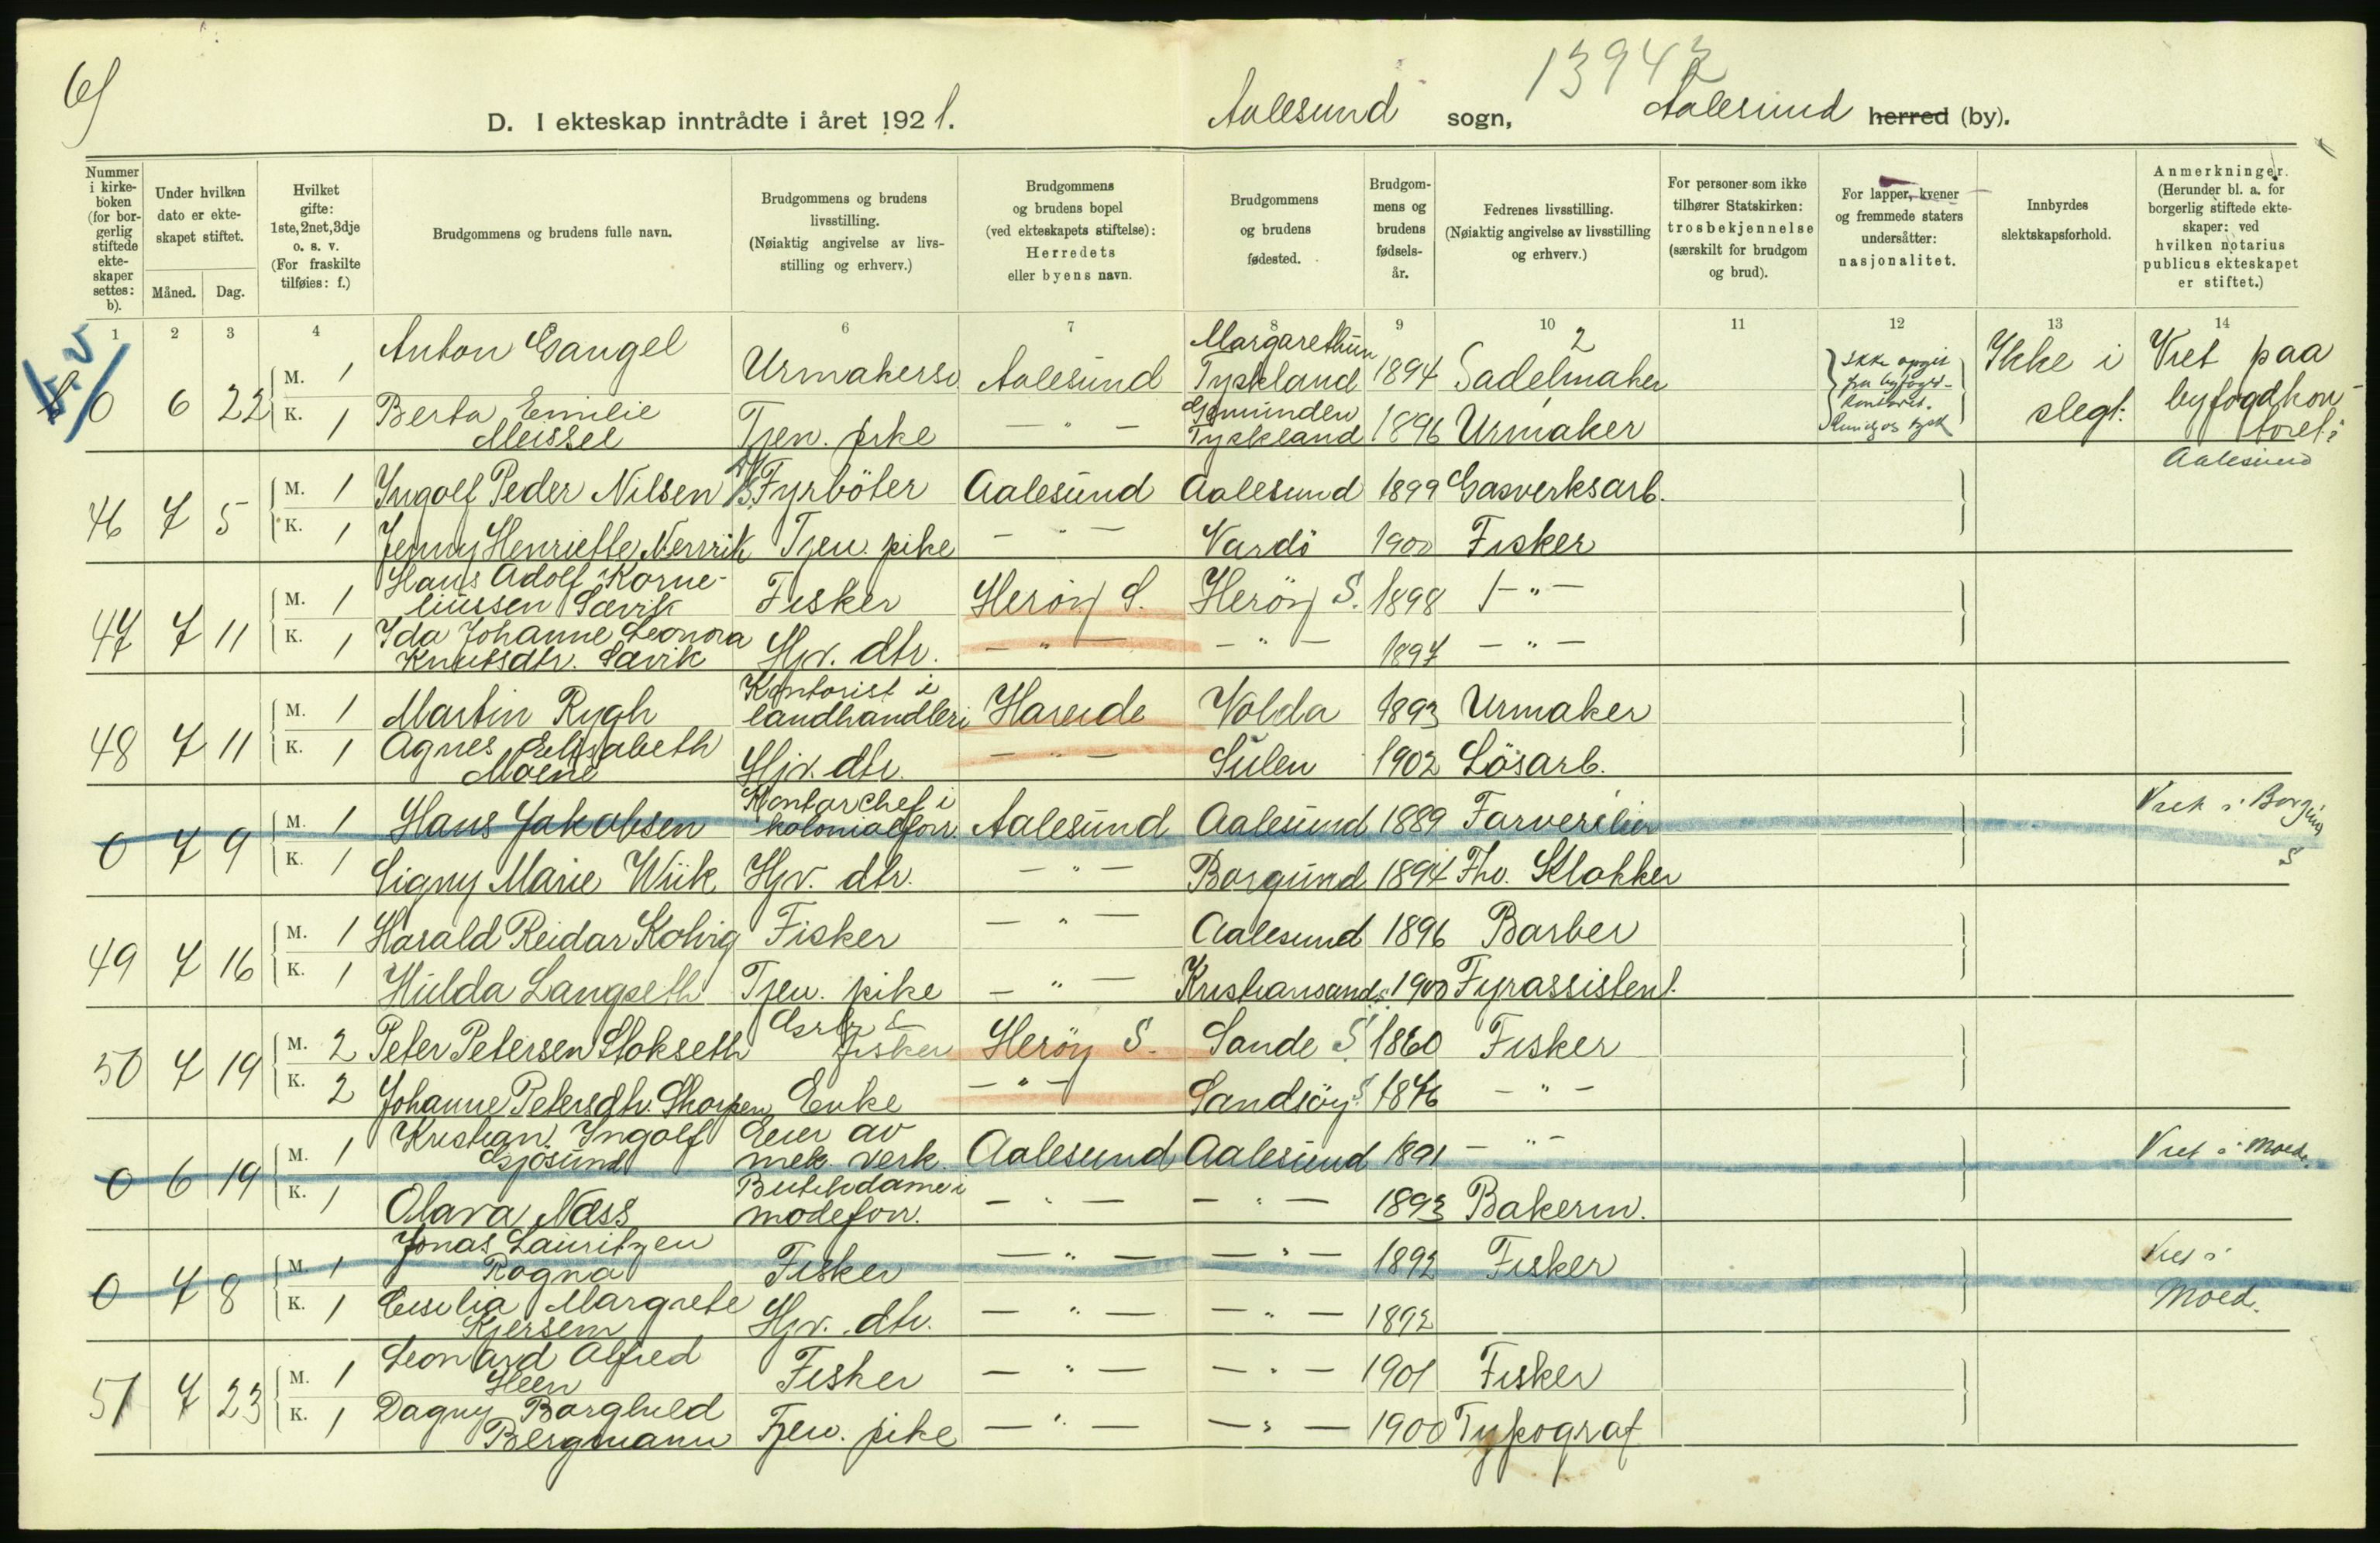 6)
13942
D. I ekteskap inntrådte i året 1921. Aalesund sogn, Aalesund herred (by).
Nummer i kirke-boken (for bor-gerlig stiftede ekte-skaper settes: b).
Under hvilken dato er ekte-skapet stiftet.
Måned. Dag.
Hvilket gifte: 1ste, 2net, 3dje o. s. v. (For fraskilte tilføies: f.)
Brudgommens og brudens fulle navn.
Brudgommens og brudens livsstilling. (Nøiaktig angivelse av livs-stilling og erhverv.)
Brudgommens og brudens bopel (ved ekteskapets stiftelse): Herredets eller byens navn.
Brudgommens og brudens fødested.
Brudgom-mens og brudens fødsels-år.
Fedrenes livsstilling. (Nøiaktig angivelse av livsstilling og erhverv.)
For personer som ikke tilhører Statskirken: trosbekjennelse (særskilt for brudgom og brud).
For lapper, kvener og fremmede staters undersåtter: nasjonalitet.
Innbyrdes slektskapsforhold.
Anmerkninger. (Herunder bl. a. for borgerlig stiftede ekte-skaper: ved hvilken notarius publicus ekteskapet er stiftet.)
1 2 3 4 6 7 8 9 10 11 12 13 14
0 6 22 M. 1 Anton Gangel Urmakersv. Aalesund Tyskland 1894 Sadelmaker Ikke i slegt. Viet paa byfogdkon-toret i Aalesund
K. 1 Berta Emilie Meissel Tjen. pike — " — Gemünden Tyskland 1896 Urmaker
46 7 5 M. 1 Ingolf Peder Nilsen Fyrböter Aalesund Aalesund 1899 Gasverksarb.
K. 1 Jenny Henriette Tjen. pike — " — Vardö 1900 Fisker
47 7 11 M. 1 Hans Adolf Korne-liussen Sævik Fisker Heröy S. Heröy S. 1898 — " —
K. 1 Ida Johanne Leonora Knutsdtr. Sævik Hjv. dtr. — " — — " — 1897 — " —
48 7 11 M. 1 Martin Rygh Kontorist i landhandleri Hareide Volda 1893 Urmaker
K. 1 Agnes Elisabeth Moene Hjv. dtr. — " — Sulen 1902 Lösarb.
0 7 9 M. 1 Hans Jakobsen Kontorchef i kolonialforr. Aalesund Aalesund 1889 Farverieier Viet i Borgund S
K. 1 Signy Marie Wiik Hjv. dtr. — " — Borgund 1894 Fhv. Klokker
49 7 16 M. 1 Harald Reidar Kolvig Fisker — " — Aalesund 1896 Barber
K. 1 Hulda Langseth Tjen. pike — " — Kristiansand S. 1900 Fyrassistent.
50 7 19 M. 2 Peter Petersen Stokseth fisker Heröy S. Sande S. 1860 Fisker
K. 2 Johanne Petersdtr. Skorpen Enke — " — Sandsöy S. 1876 — " —
0 6 19 M. 1 Kristian Ingolf Gjøsund Eier av mek. verk. Aalesund Aalesund 1891 — " — Viet i Molde.
K. 1 Olava Næss Butikdame i modeforr. — " — — " — 1893 Bakerm.
0 7 8 M. 1 Jonas Lauritzen Rogna Fisker — " — — " — 1892 Fisker Viet i Molde.
K. 1 Cesilia Margrete Kjersem Hjv. dtr. — " — — " — 1892
51 7 23 M. 1 Leonard Alfred Heen Fisker — " — — " — 1901 Fisker
K. 1 Dagny Borghild Bergmann Tjen. pike — " — — " — 1900 Typograf